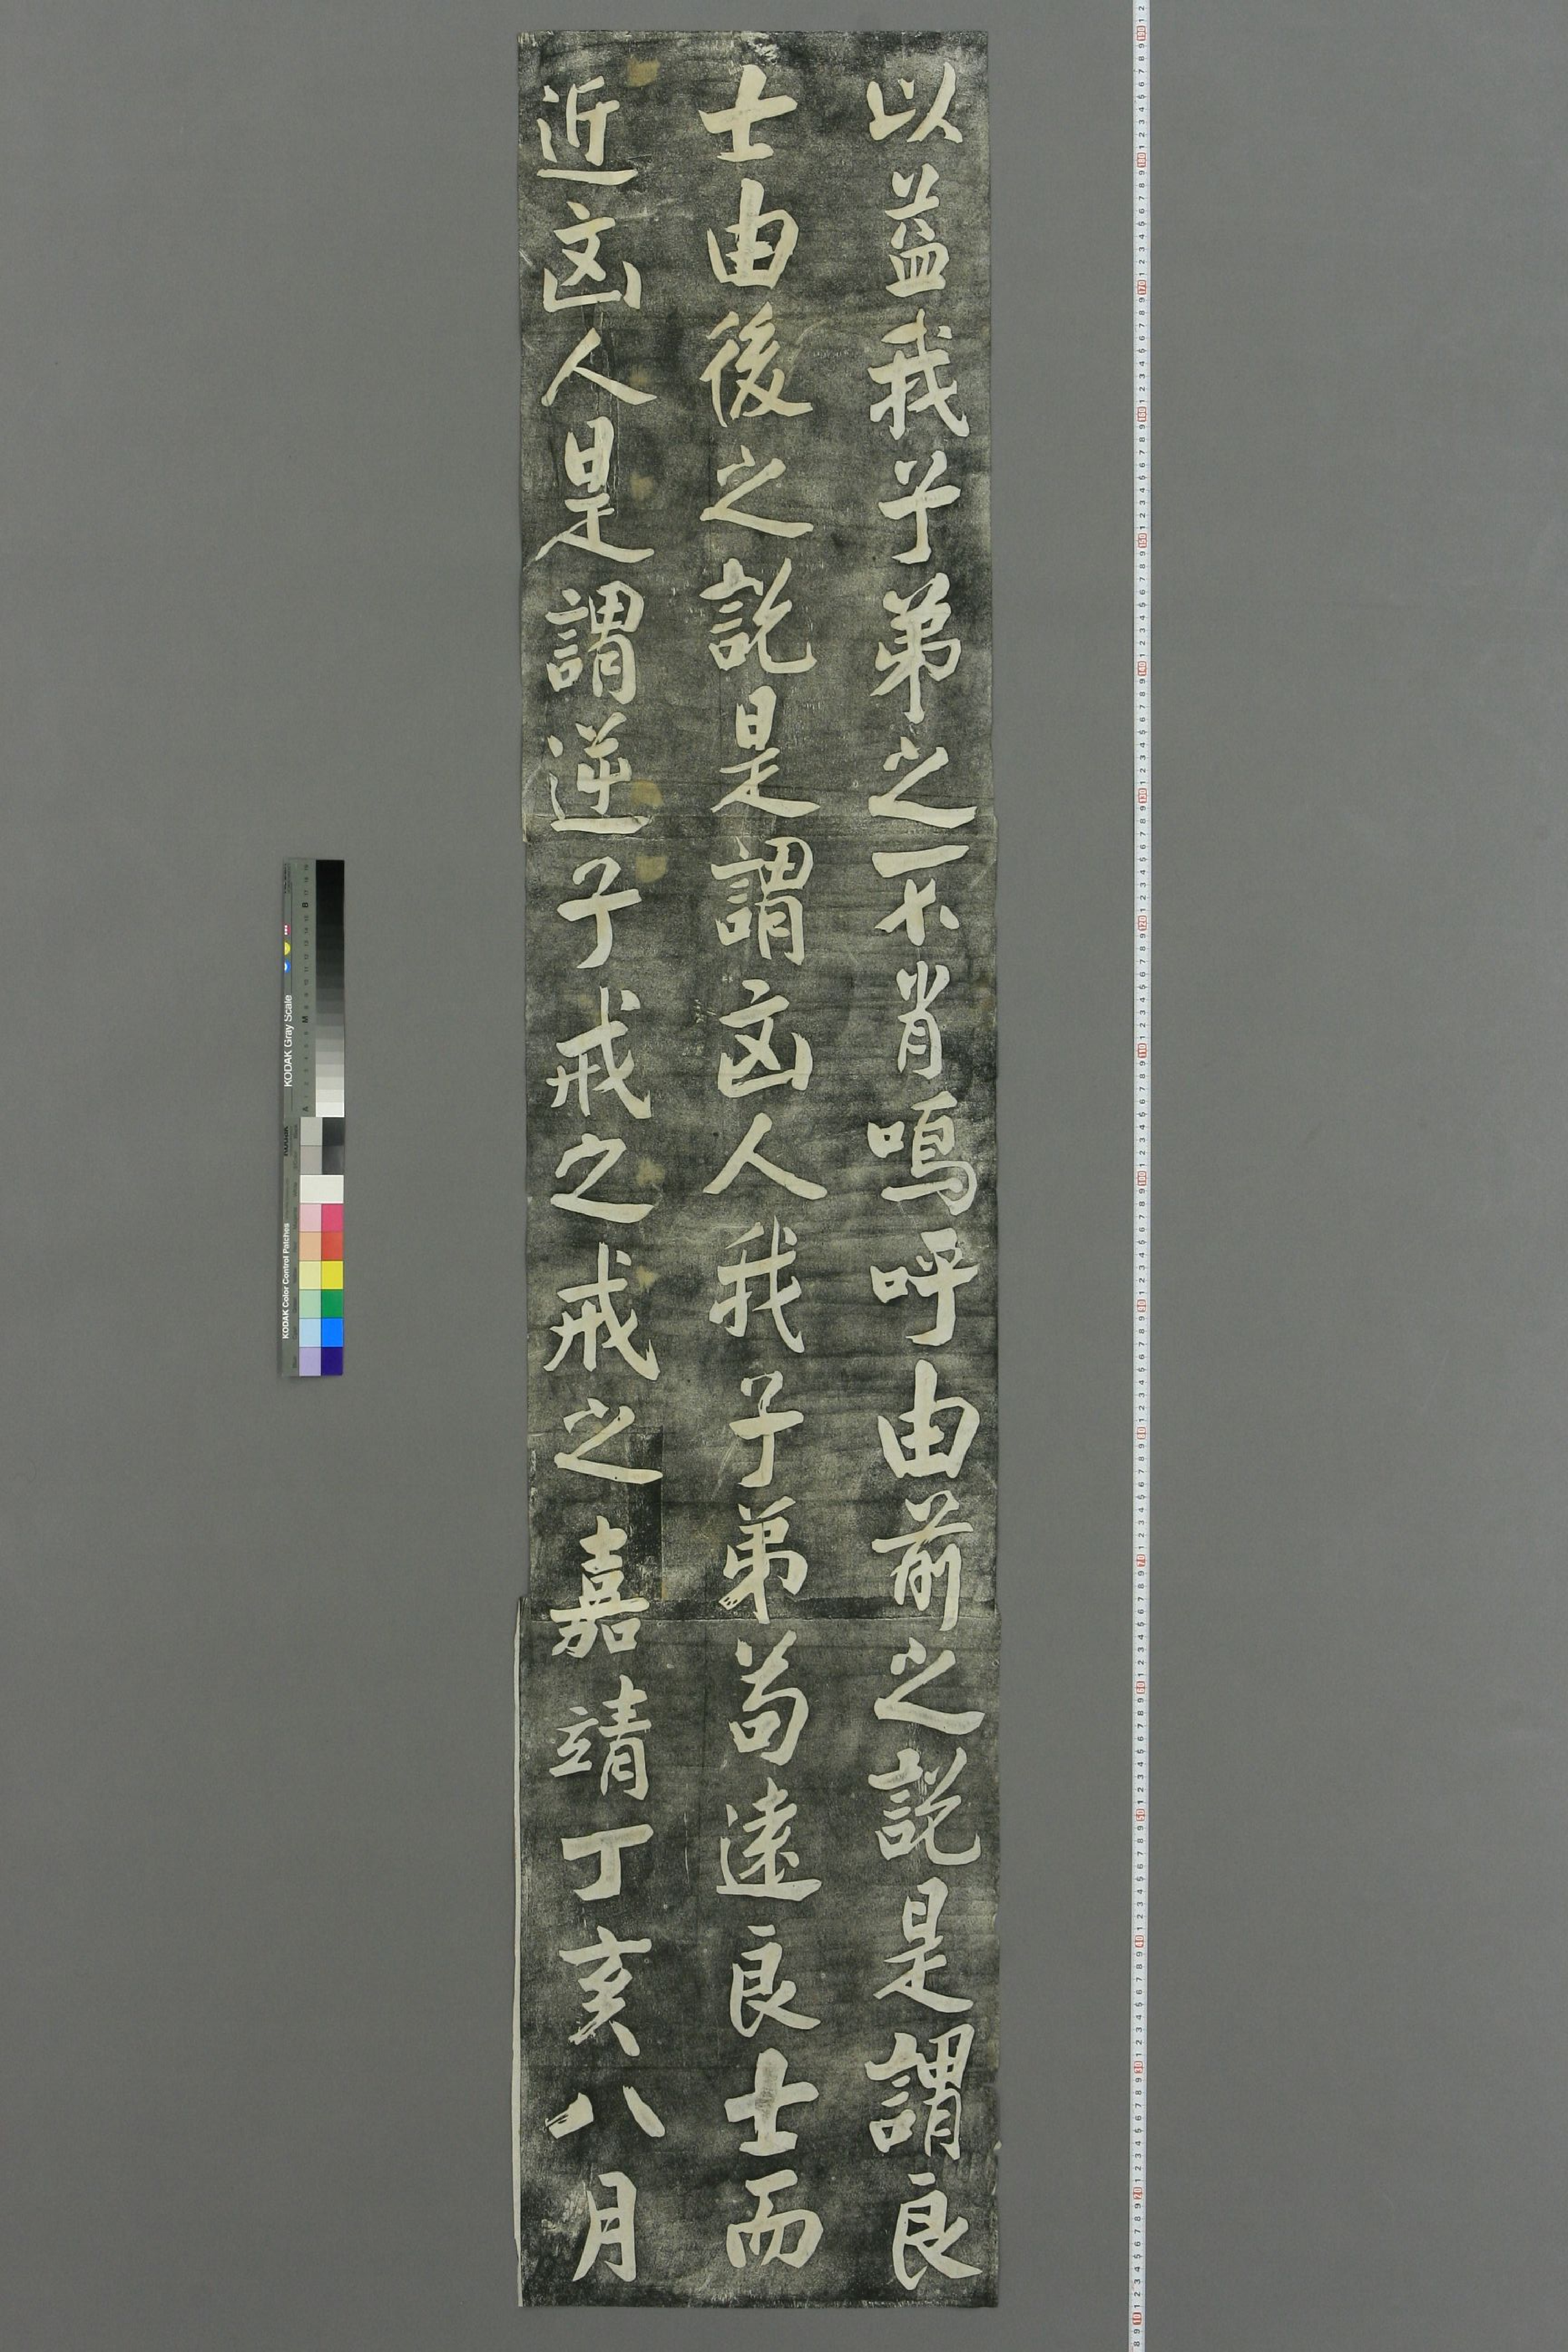 以益我子弟之不肖嗚呼由前之説是謂良
士由後之説是謂凶人我子弟苟遠良士而
近凶人是謂逆子戒之戒之嘉靖丁亥八月
KODAK Gray Scale
KODAK Color Control Patches